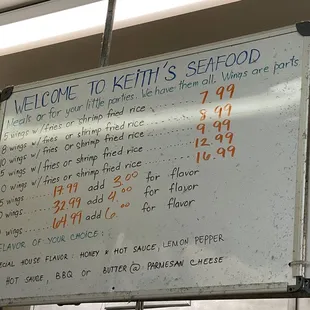 WELCOME TO KEITH'S SEAFOOD
Meals or for your little parties. We have them all. Wings are parts
5 wings w/fries or shrimp fried rice 7.99
8 wings w/fries or shrimp fried rice 8.99
10 wings w/fries or shrimp fried rice 9.99
5 wings w/fries or shrimp fried rice 12.99
0 wings w/fries or shrimp fried rice 16.99
5 wings 17.99 add 3.00 for flavor
0 wings 32.99 add 4.00 for flavor
wings 64.99 add 6.00 for flavor
FLAVOR OF YOUR CHOICE:
ECIAL HOUSE FLAVOR: HONEY & HOT SAUCE, LEMON PEPPER
HOT SAUCE, BBQ or BUTTER @ PARMESAN CHEESE